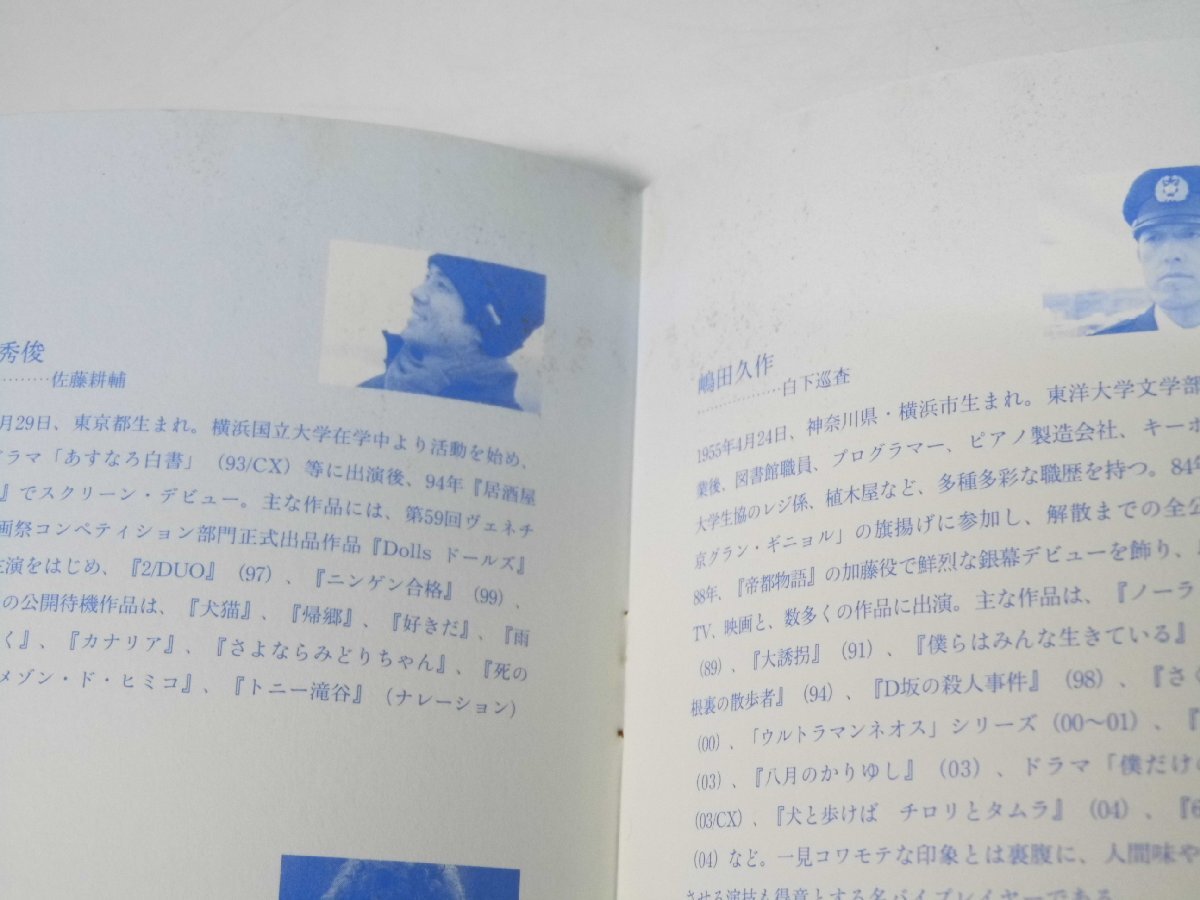 秀俊
………佐藤耕輔
月29日、東京都生まれ。横浜国立大学在学中より活動を始め、
ドラマ「あすなろ白書」（93/CX）等に出演後、94年『居酒屋
』でスクリーン・デビュー。主な作品には、第59回ヴェネチ
画祭コンペティション部門正式出品作品『Dolls ドールズ』
主演をはじめ、『2/DUO』（97）、『ニンゲン合格』（99）、
の公開待機作品は、『犬猫』、『帰郷』、『好きだ』、『雨
く』、『カナリア』、『さよならみどりちゃん』、『死の
メゾン・ド・ヒミコ』、『トニー滝谷』（ナレーション）
嶋田久作
……………白下巡査
1955年4月24日、神奈川県・横浜市生まれ。東洋大学文学部
業後、図書館職員、プログラマー、ピアノ製造会社、キーボ
大学生協のレジ係、植木屋など、多種多彩な職歴を持つ。84年
京グラン・ギニョル」の旗揚げに参加し、解散までの全公
88年、『帝都物語』の加藤役で鮮烈な銀幕デビューを飾り、
TV、映画と、数多くの作品に出演。主な作品は、『ノーラ
（89）、『大誘拐』（91）、『僕らはみんな生きている』
根裏の散歩者』（94）、『D坂の殺人事件』（98）、『さく
（00）、「ウルトラマンネオス」シリーズ（00〜01）、『
（03）、『八月のかりゆし』（03）、ドラマ「僕だけの
（03/CX）、『犬と歩けば　チロリとタムラ』（04）、『6
（04）など。一見コワモテな印象とは裏腹に、人間味や
させる演技も得意とする名バイプレイヤーである。